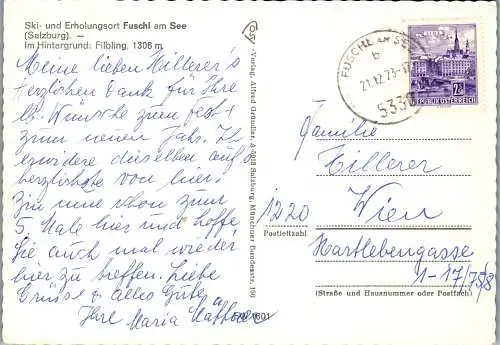 Ski- und Erholungsort Fuschl am See
(Salzburg). —
Im Hintergrund: Filbling, 1306 m
Meine lieben Hillerer's
Herzlichen Dank für Ihre
lb. Wünsche zum fest +
zum neuen Jahr. Ich
erwidere dieselben auf's
herzlichste von hier.
Bin nun schon zum
5. Male hier und hoffe,
Sie auch mal wieder
hier zu treffen. Liebe
Grüsse & alles Gute
Ihre Maria
Verlag, Alfred Gründler, A-5026 Salzburg, Münchner Bundesstr. 156
FW 1601
FUSCHL AM SEE
b
21.12.73-17
5330
2.50
REPUBLIK ÖSTERREICH
Familie
Hillerer
1220 Wien
Postleitzahl
Hartlebengasse
1-17/75/8
(Straße und Hausnummer oder Postfach)